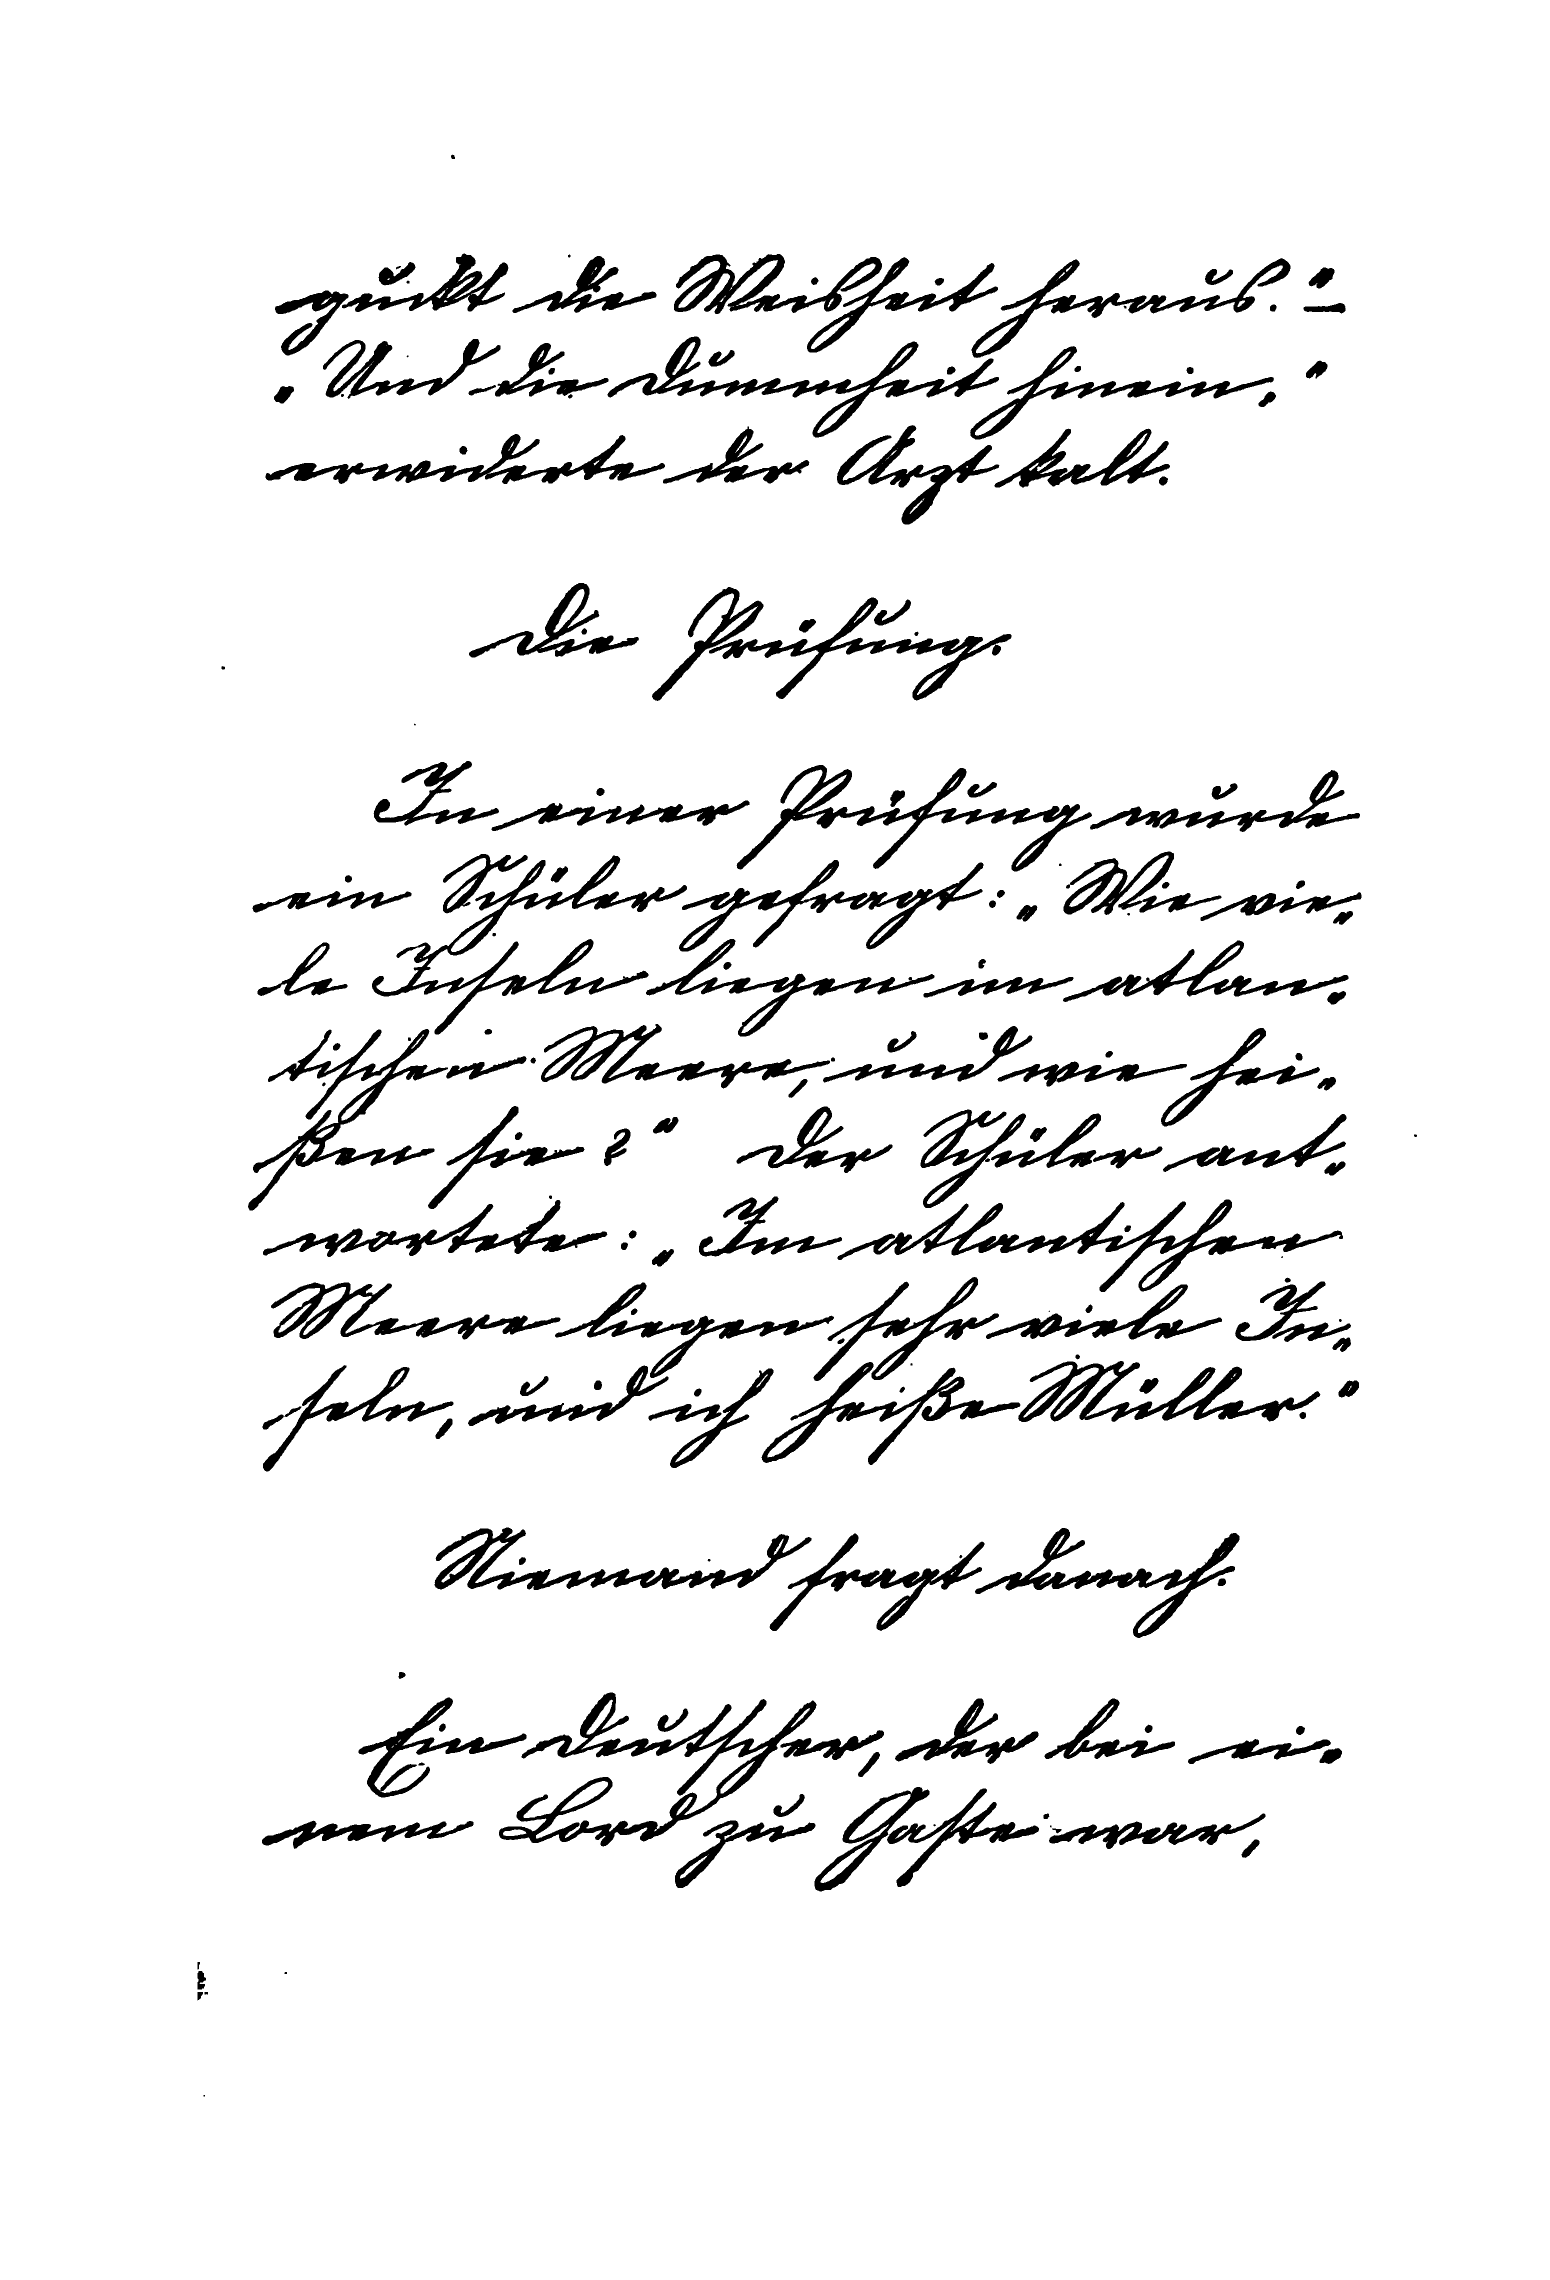 guckt die Weisheit heraus." –
„Und die Dummheit hinein,"
erwiderte der Arzt kalt.
Die Prüfung.
In einer Prüfung wurde
ein Schüler gefragt: „Wie vie-
le Inseln liegen im atlan-
tischen Meere, und wie hei-
ßen sie?" Der Schüler ant-
wortete: „Im atlantischen
Meere liegen sehr viele In-
seln, und ich heiße Müller."
Niemand fragt danach.
Ein Deutscher, der bei ei-
nem Lord zu Gaste war,